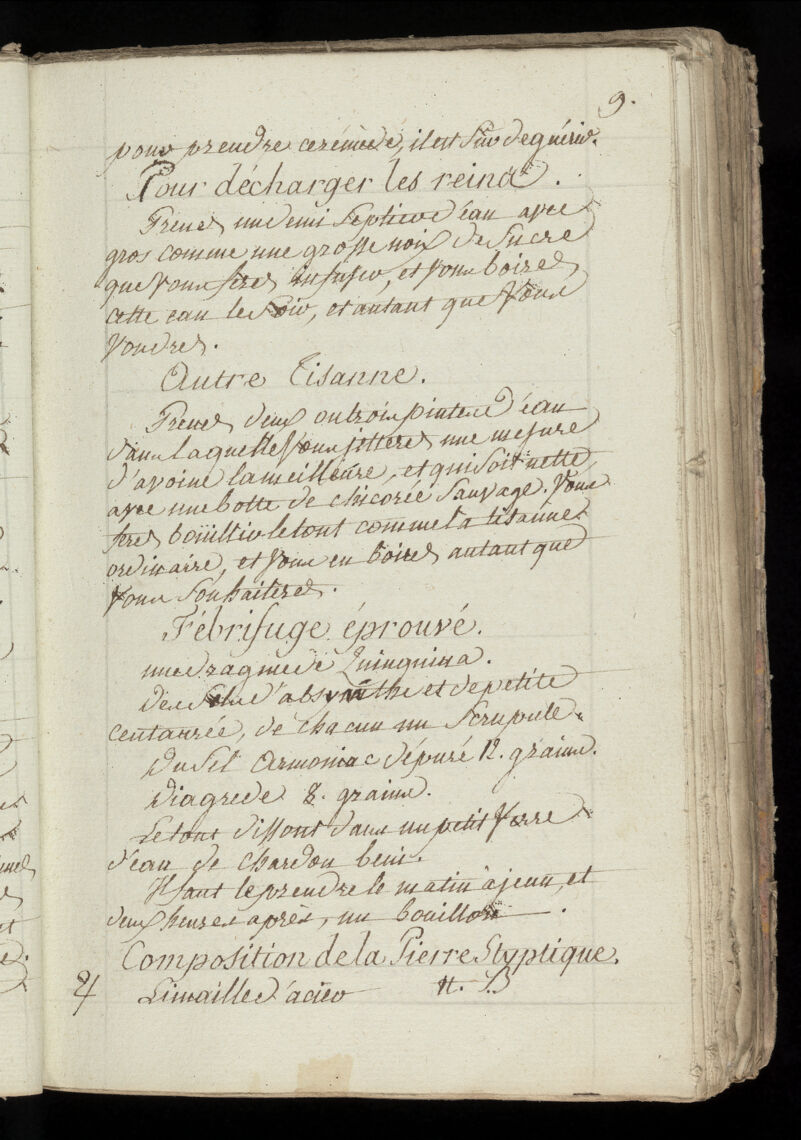 9.
pour prendre ce rémede, il est sûr de guérir.
Pour décharger les reins.
Prenez un demi septier d'éau avec
gros comme une grosse noix de sucre
que vous ferez infuser, et vous boirez
cette eau le soir, et autant que vous
voudrez.
Autre Tisanne.
Prenez deux ou trois pintes d'éau
dans laquelle vous jetterez une mesure
d'avoine la meilleure, et qui soit nette,
avec une botte de chicorée sauvage. Vous
ferez boüillir le tout comme la tisanne
ordinaire, et vous en boirez autant que
vous souhaiterez.
Fébrifuge éprouvé.
une dragme de Quinquina.
des sels d'absynthe et de petite
centaurée, de chacun un scrupule.
du sel armoniac dépuré 12. grains.
diagrede 8. grains.
Le tout dissout dans un petit verre
d'eau de chardon beni.
Il faut le prendre le matin à jeun, et
deux heures après, un bouillon.
Composition de la Pierre Styptique.
Limailles d'acier